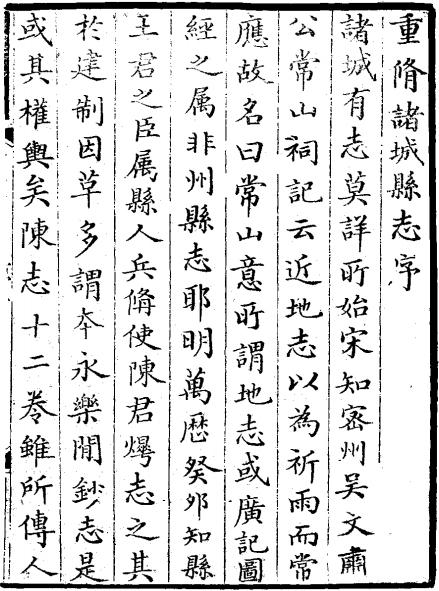 重脩諸城縣志序
諸城有志莫詳所始宋知密州吴文肅
公常山祠記云近地志以為祈雨而常
應故名曰常山意所謂地志或廣記圖
經之属非州縣志耶明萬歷癸夘知縣
王君之臣属縣人兵偹使陳君燁志之其
於建制因草多謂夲永樂閒鈔志是
或其權輿矣陳志十二卷雖所傳人